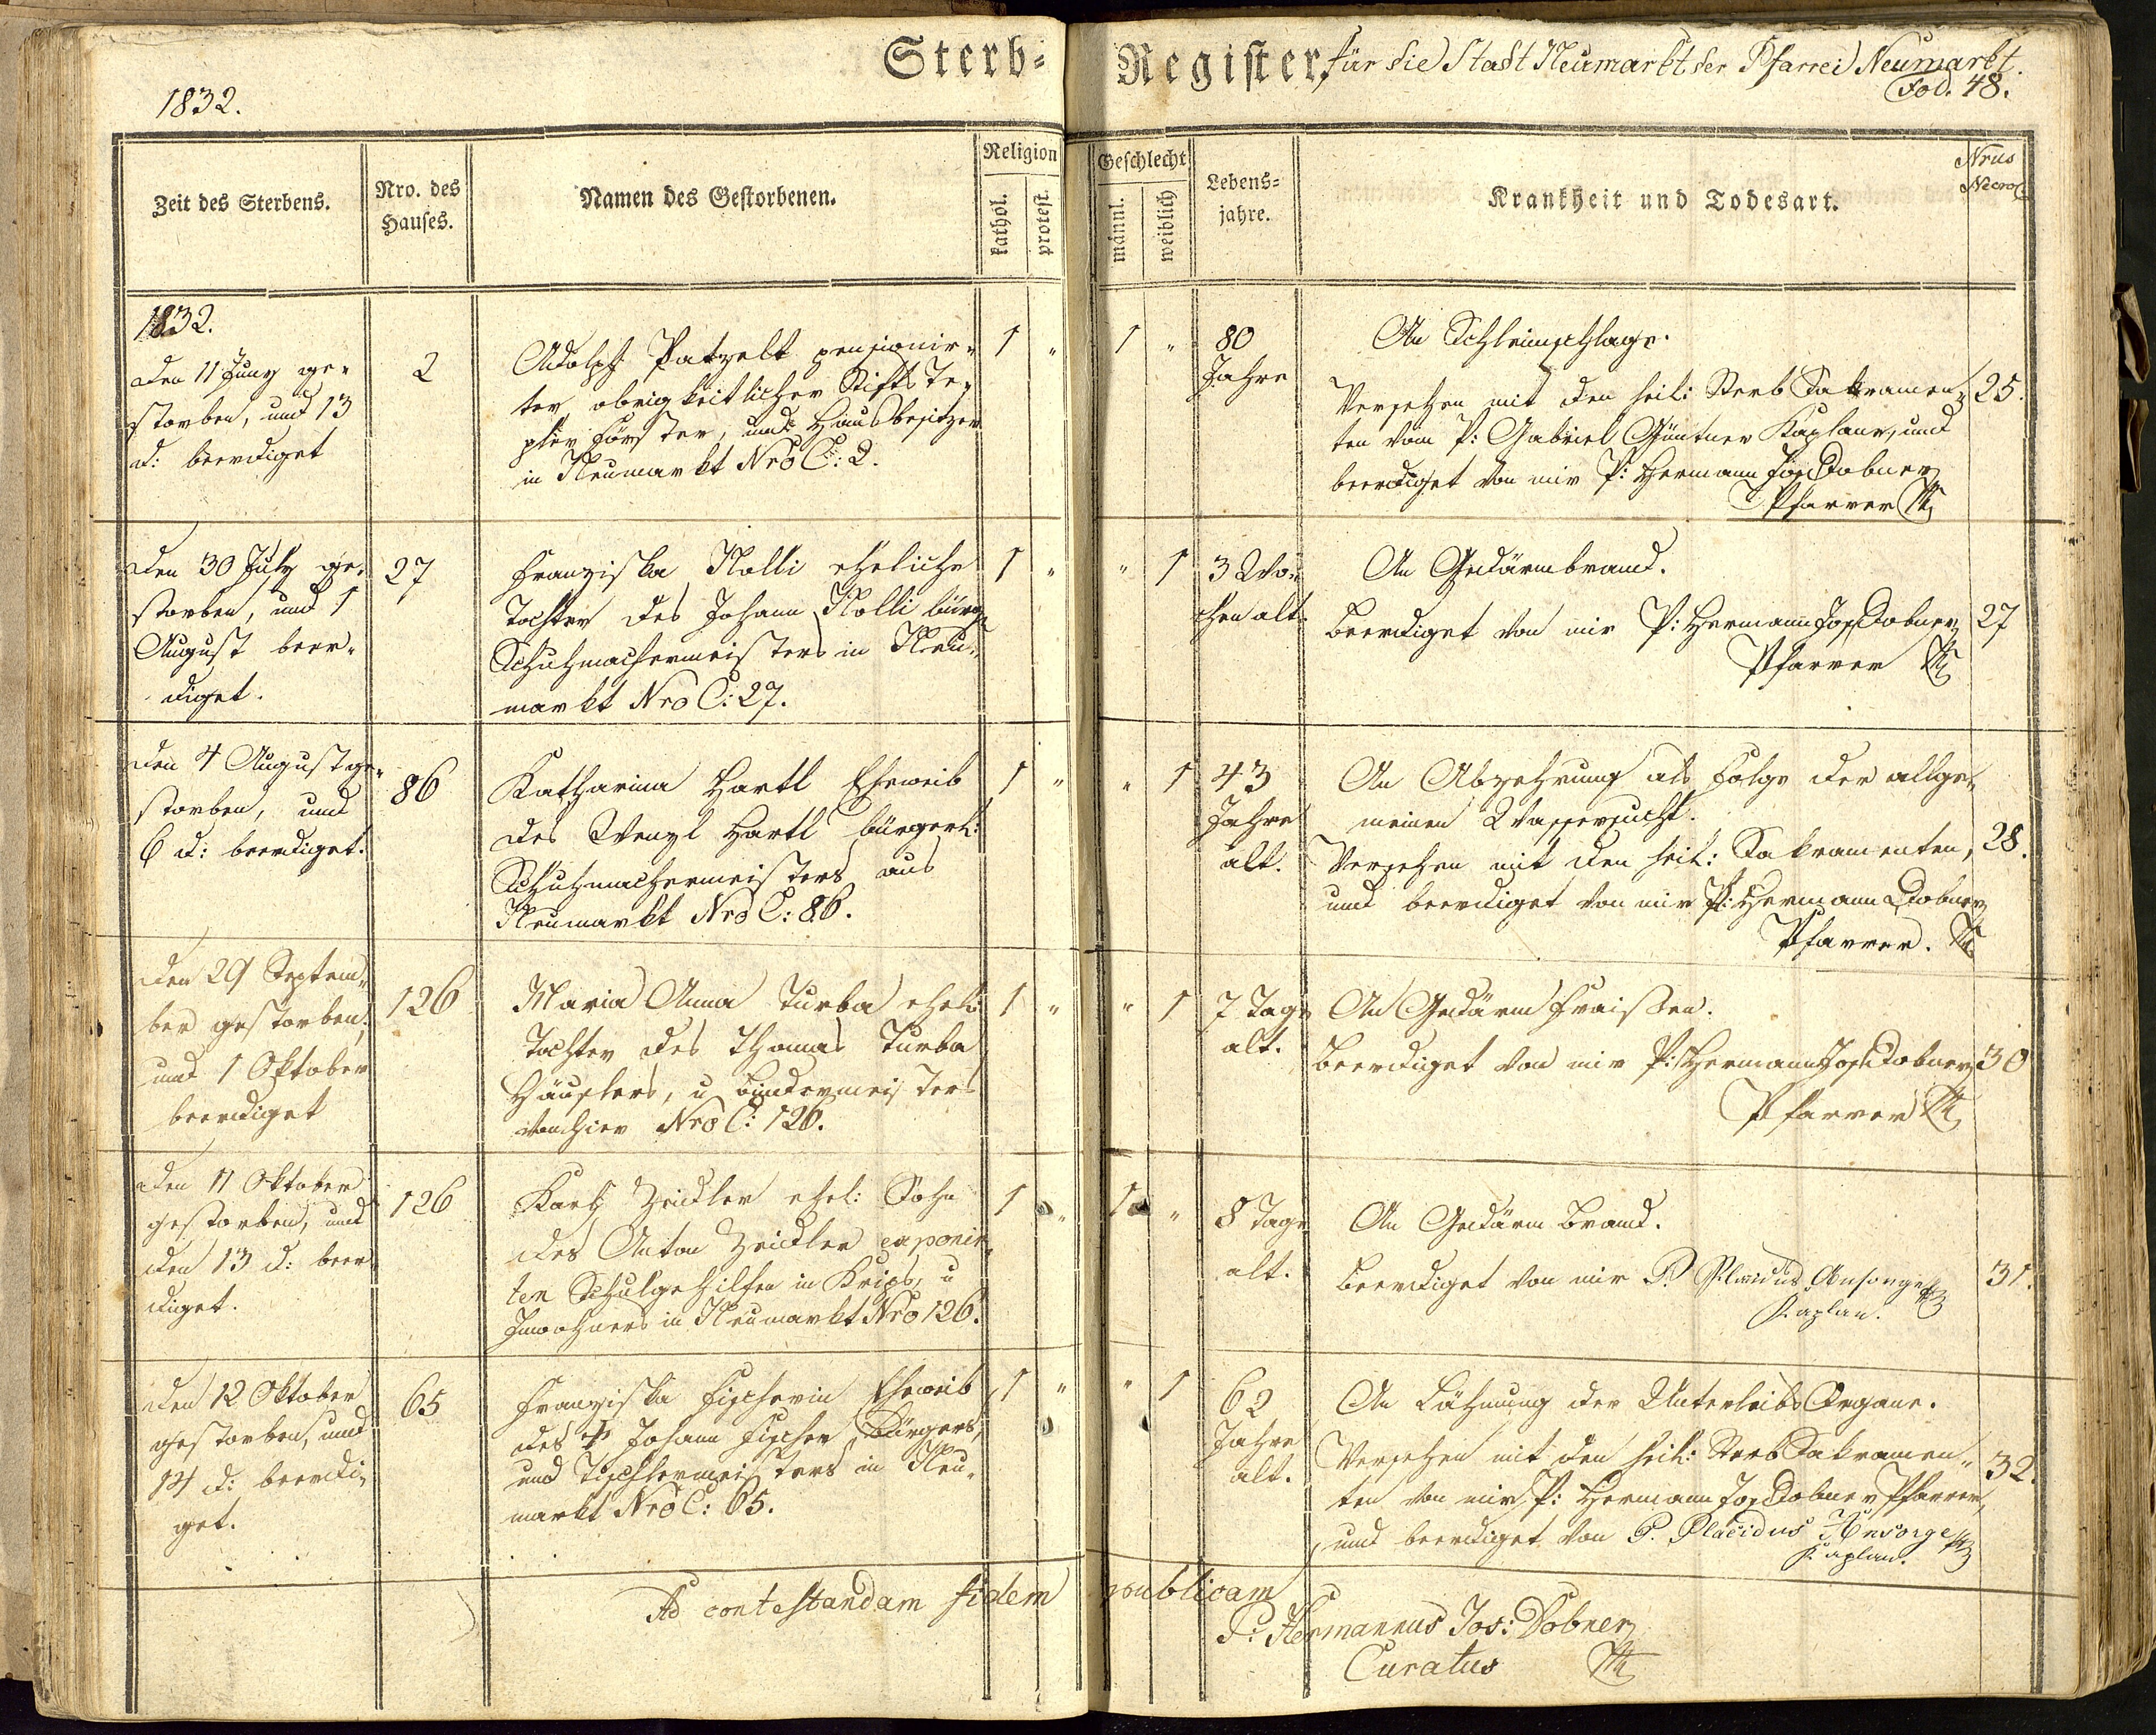 Sterb-Register, für die Stadt Neumarkt der Pfarrei Neumarkt.
1832.
Fol. 48.
Zeit des Sterbens.
Nro. des
Hauses.
Namen des Gestorbenen.
Religion
kathol.
protest.
Geschlecht
männl.
weiblich
Lebens-
jahre.
Krankheit und Todesart.
Nrus
1832.
den 11 Juny ge-
storben, und 13
d: beerdiget
2
Adolph Patzelt pensionir-
ter obrigkeitlicher Stifts Te-
pler Förster, und Hausbesitzer
in Neumarkt Nro C: 2.
1 "
1 "
80
Jahre
An Schleimschlage.
Versehen mit den heil: Sterb Sakramen-
ten vom P: Gabriel Güntner Kaplane, und
beerdiget von mir P: Hermann Jos Dobner
Pfarrer
25.
den 30 July ge-
storben, und 1
August beer-
diget.
27
Franziska Nolli eheliche
Tochter des Johann Nolli bürg
Schuhmachermeisters in Neu-
markt Nro C: 27.
1 "
" 1
3 Wo-
chen alt.
An Gedärmbrand.
Beerdiget von mir P: Hermann Jos Dobner
Pfarrer
27
den 4 August ge-
storben, und
6 d: beerdiget.
86
Katharina Hartl Eheweib
des Wenzl Hartl bürgerl:
Schuhmachermeisters aus
Neumarkt Nro C: 86.
1 "
" 1
43
Jahre
alt.
An Abzehrung als Folge der allge-
meinen Wassersucht.
Versehen mit den heil: Sakramenten,
und beerdiget von mir P: Hermann Dobner
Pfarrer.
28.
den 29 Septem-
ber gestorben,
und 1 Oktober
beerdiget
126
Maria Anna Turba ehel:
Tochter des Thomas Turba
Häuslers, u Bindermeisters
von hier Nro C: 126.
1 "
" 1
7 Tage
alt.
An Gedärm Fraisen.
Beerdiget von mir P: Hermann Jos Dobner
Pfarrer
30
den 11 Oktober
gestorben, und
den 13 d: beer
diget.
126
Karl Zeidler ehel: Sohn
des Anton Zeidler exponir-
ten Schulgehilfen in Krips, u
Inwohners in Neumarkt Nro 126.
1 "
1 "
8 Tage
alt.
An Gedärm Brand.
Beerdiget von mir P. Placidus Ansorge
Kaplan.
31.
den 12 Oktober
gestorben, und
14 d: beerdi-
get.
65
Franziska Fischerin Eheweib
des Johann Fischer Bürgers,
und Tischlermeisters in Neu-
markt Nro C: 65.
1 "
" 1
62
Jahre
alt.
An Lähmung der Unterleibs Organe.
Versehen mit den heil: Sterb Sakramen-
ten von mir P: Hermann Jos Dobner Pfarrer,
und beerdiget von P. Placidus Ansorge
Kaplan.
32.
Ad contestandam fidem publicam
P: Hermannus Jos: Dobner
Curatus